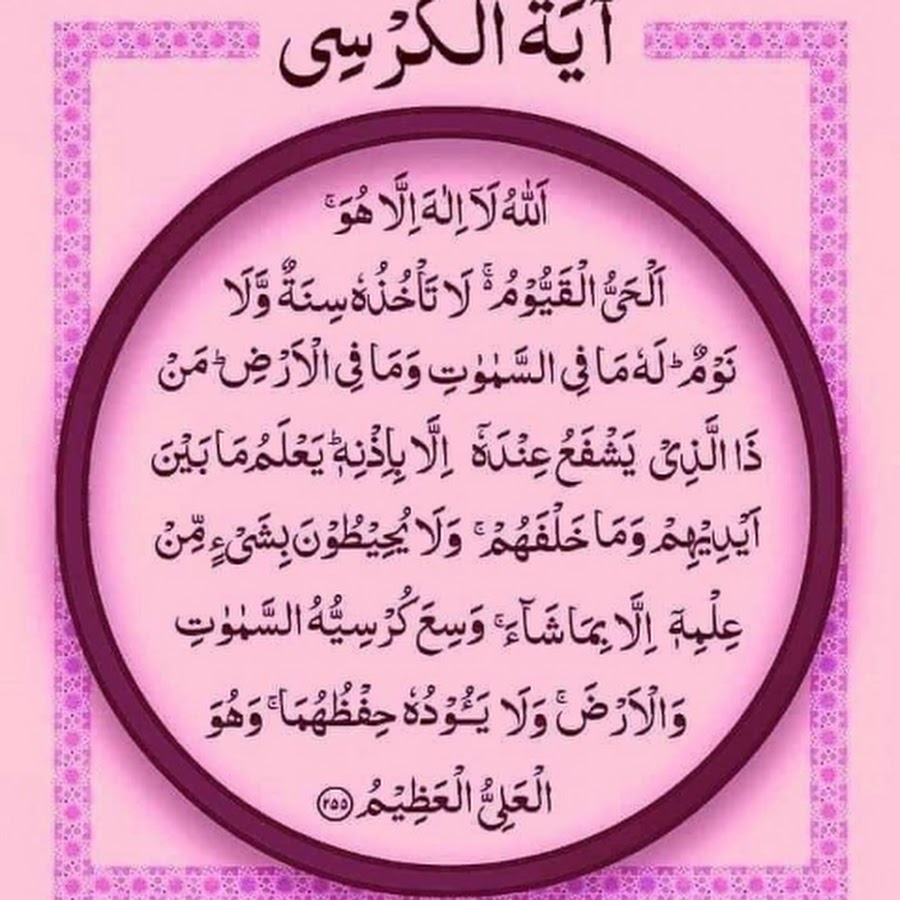 آيَةُ الْكُرْسِى
اَللّٰهُ لَاۤ اِلٰهَ اِلَّا هُوَۚ
اَلْحَىُّ الْقَيُّوْمُ ۬ۚ لَا تَاْخُذُهٗ سِنَةٌ وَّلَا
نَوْمٌ ؕ لَهٗ مَا فِى السَّمٰوٰتِ وَمَا فِى الْاَرْضِ ؕ مَنْ
ذَا الَّذِىْ يَشْفَعُ عِنْدَهٗۤ اِلَّا بِاِذْنِهٖ ؕ يَعْلَمُ مَا بَيْنَ
اَيْدِيْهِمْ وَمَا خَلْفَهُمْ ۚ وَلَا يُحِيْطُوْنَ بِشَىْءٍ مِّنْ
عِلْمِهٖۤ اِلَّا بِمَا شَآءَ ۚ وَسِعَ كُرْسِيُّهُ السَّمٰوٰتِ
وَالْاَرْضَ ۚ وَلَا يَــُٔوْدُهٗ حِفْظُهُمَا ۚ وَهُوَ
الْعَلِىُّ الْعَظِيْمُ ۝۲۵۵